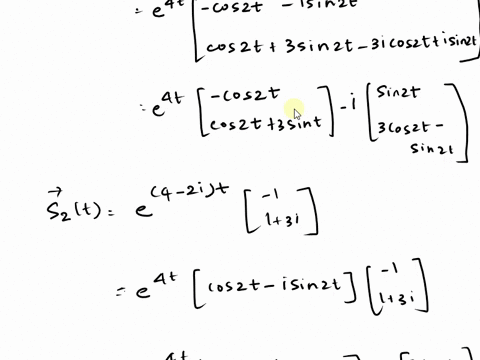 = e^4t [ -cos2t - isin2t
cos2t + 3sin2t - 3icos2t + isin2t ]
= e^4t [ -cos2t
cos2t + 3sint ] - i [ sin2t
3cos2t - sin2t ]
S⃗₂(t) = e^(4-2i)t [ -1
1+3i ]
= e^4t [ cos2t - isin2t ] [ -1
1+3i ]